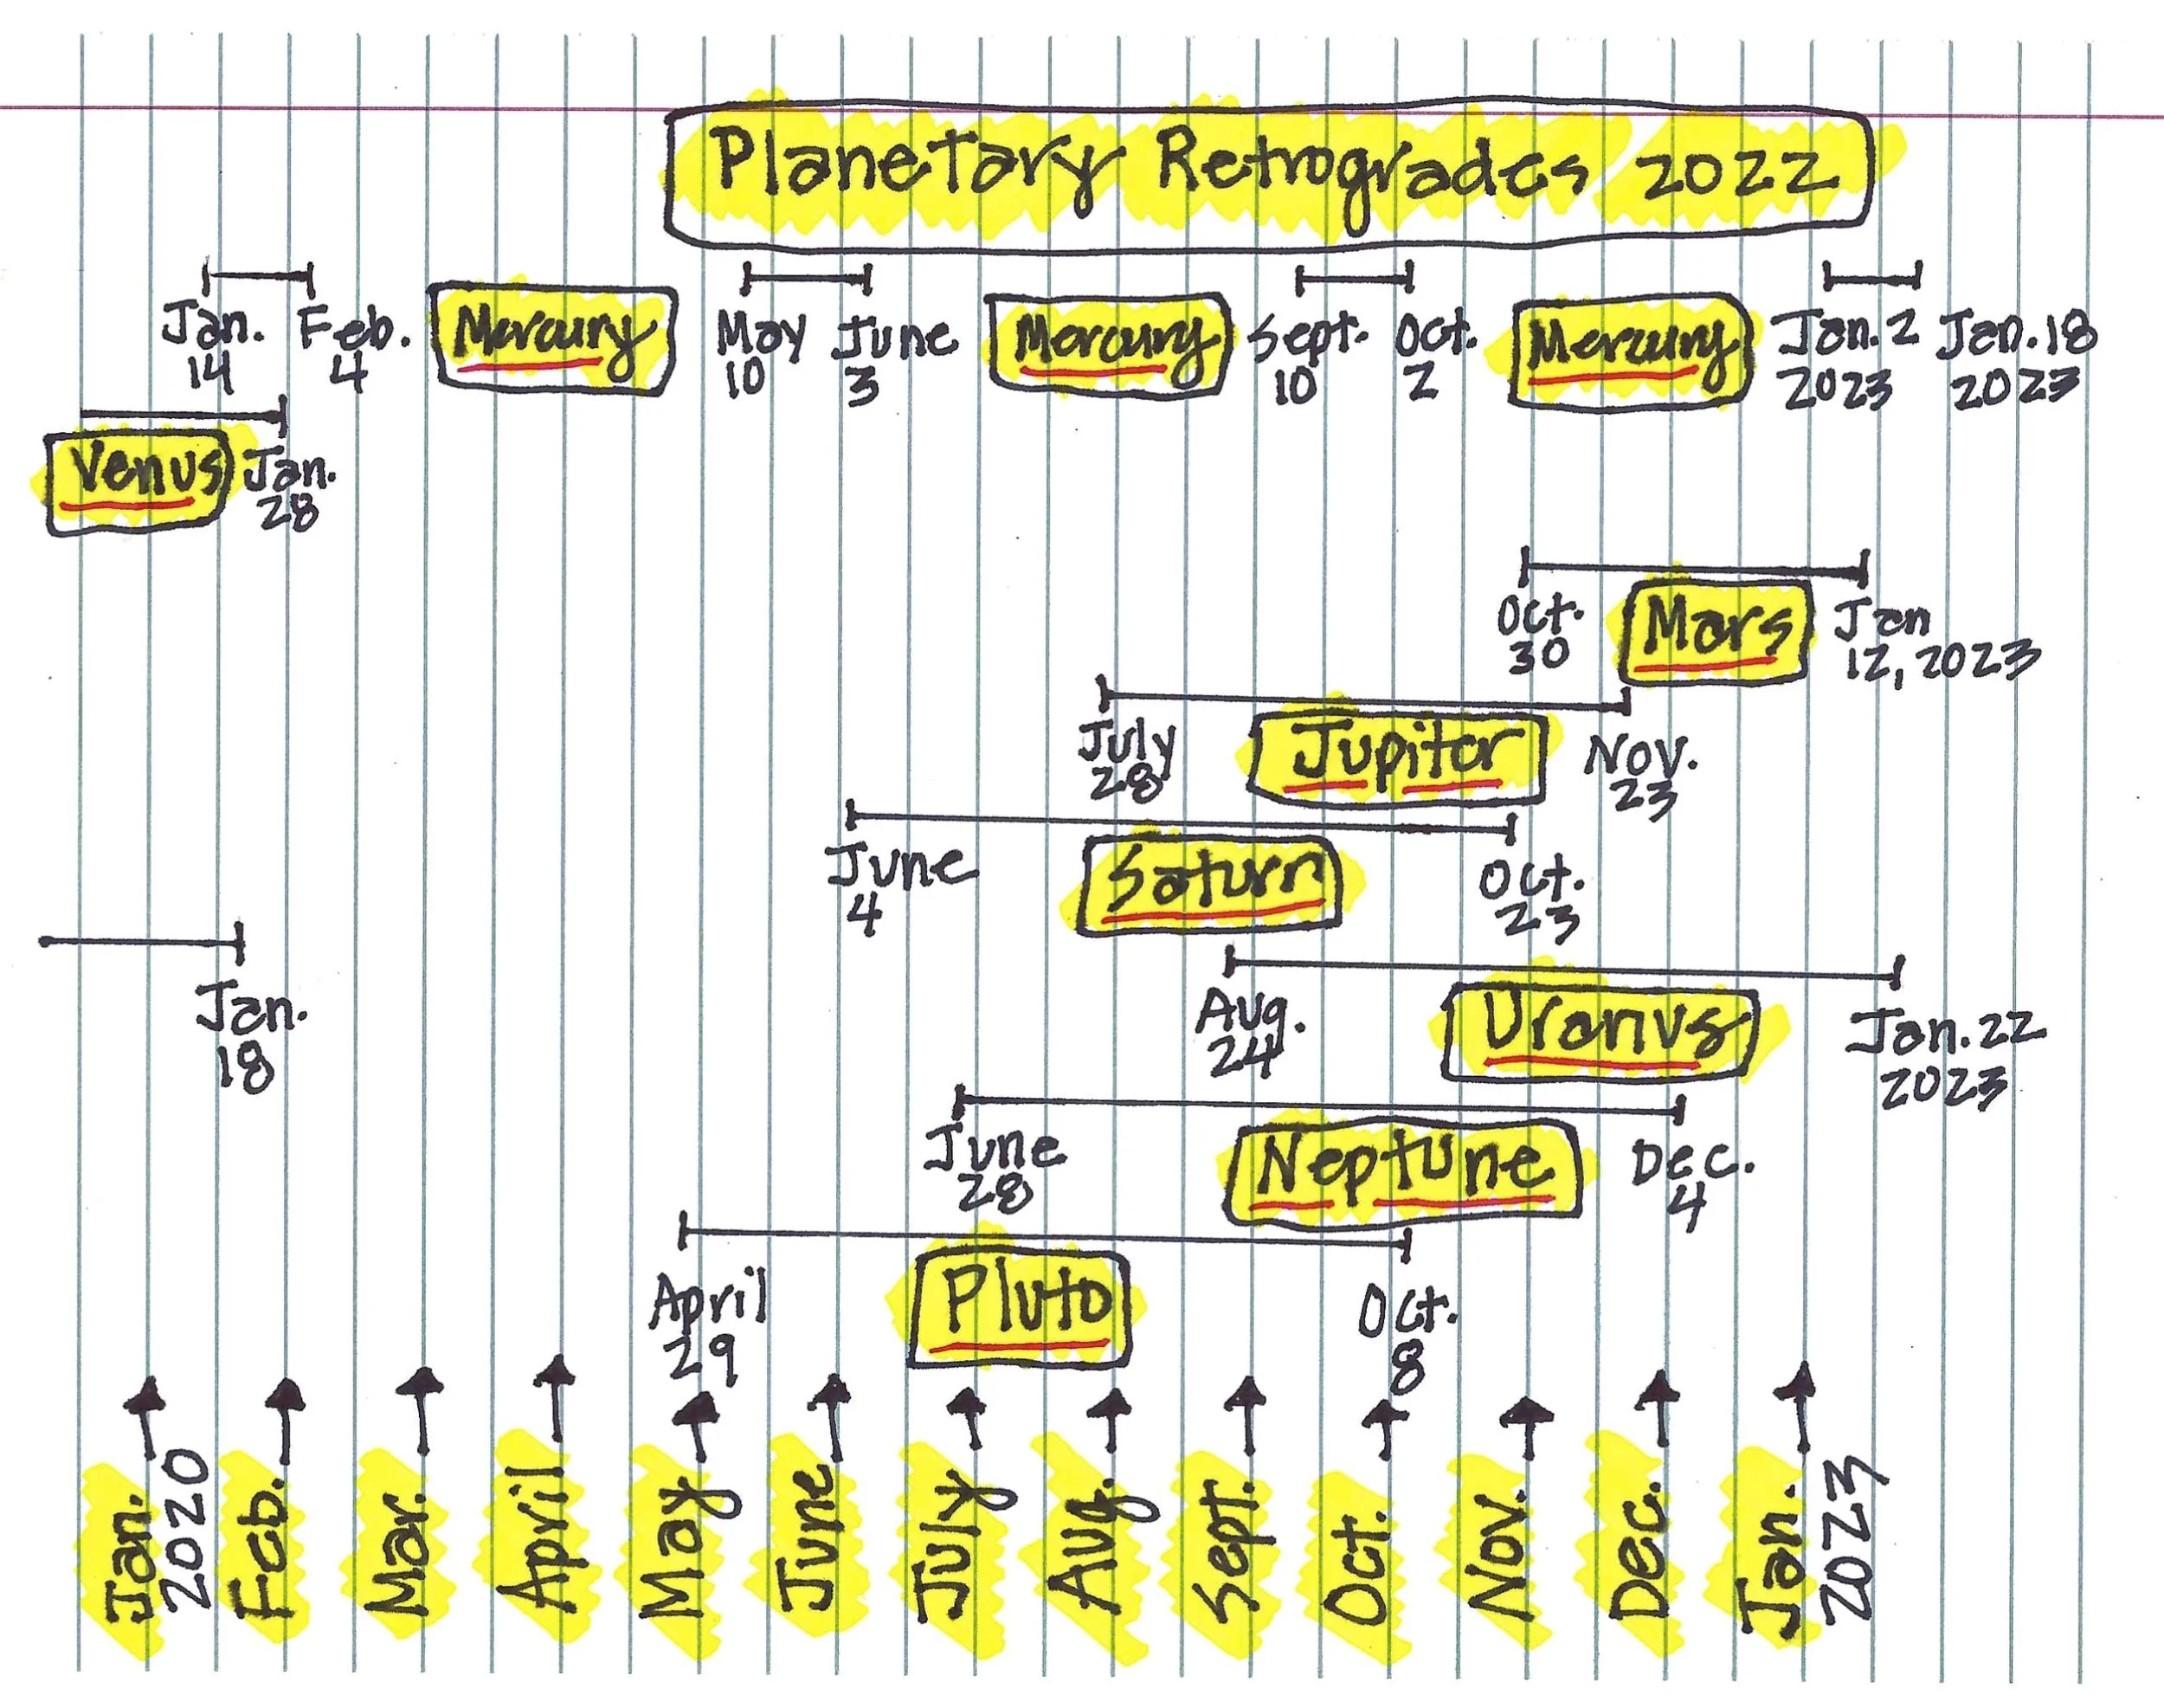 Planetary Retrogrades 2022
Jan. 14
Feb. 4
Mercury
May 10
June 3
Mercury
Sept. 10
Oct. 2
Mercury
Jan. 2 2023
Jan. 18 2023
Venus
Jan. 28
Oct. 30
Mars
Jan 12, 2023
July 28
Jupiter
Nov. 23
June 4
Saturn
Oct. 23
Jan. 18
Aug. 24
Uranus
Jan. 22 2023
June 28
Neptune
Dec. 4
April 29
Pluto
Oct. 8
Jan. 2020
Feb.
Mar.
April
May
June
July
Aug.
Sept.
Oct.
Nov.
Dec.
Jan. 2023